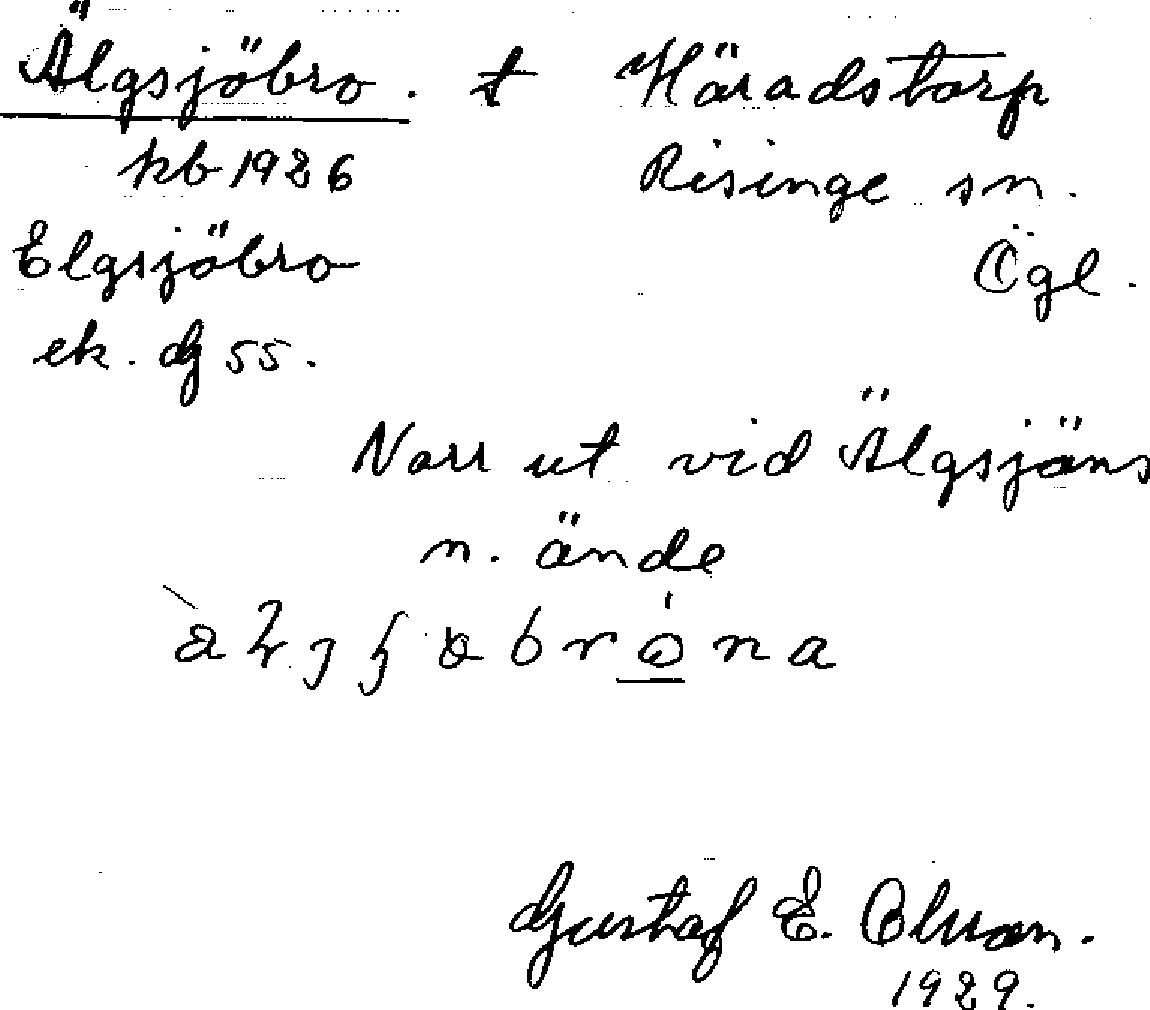 Älgsjöbro. t Häradstorp
kb 1926 Risinge sn.
Elgsjöbro Ögl.
ek. G 55.
Norr ut vid Älgsjöns
n. ände
Gustaf E. Olsson.
1929.